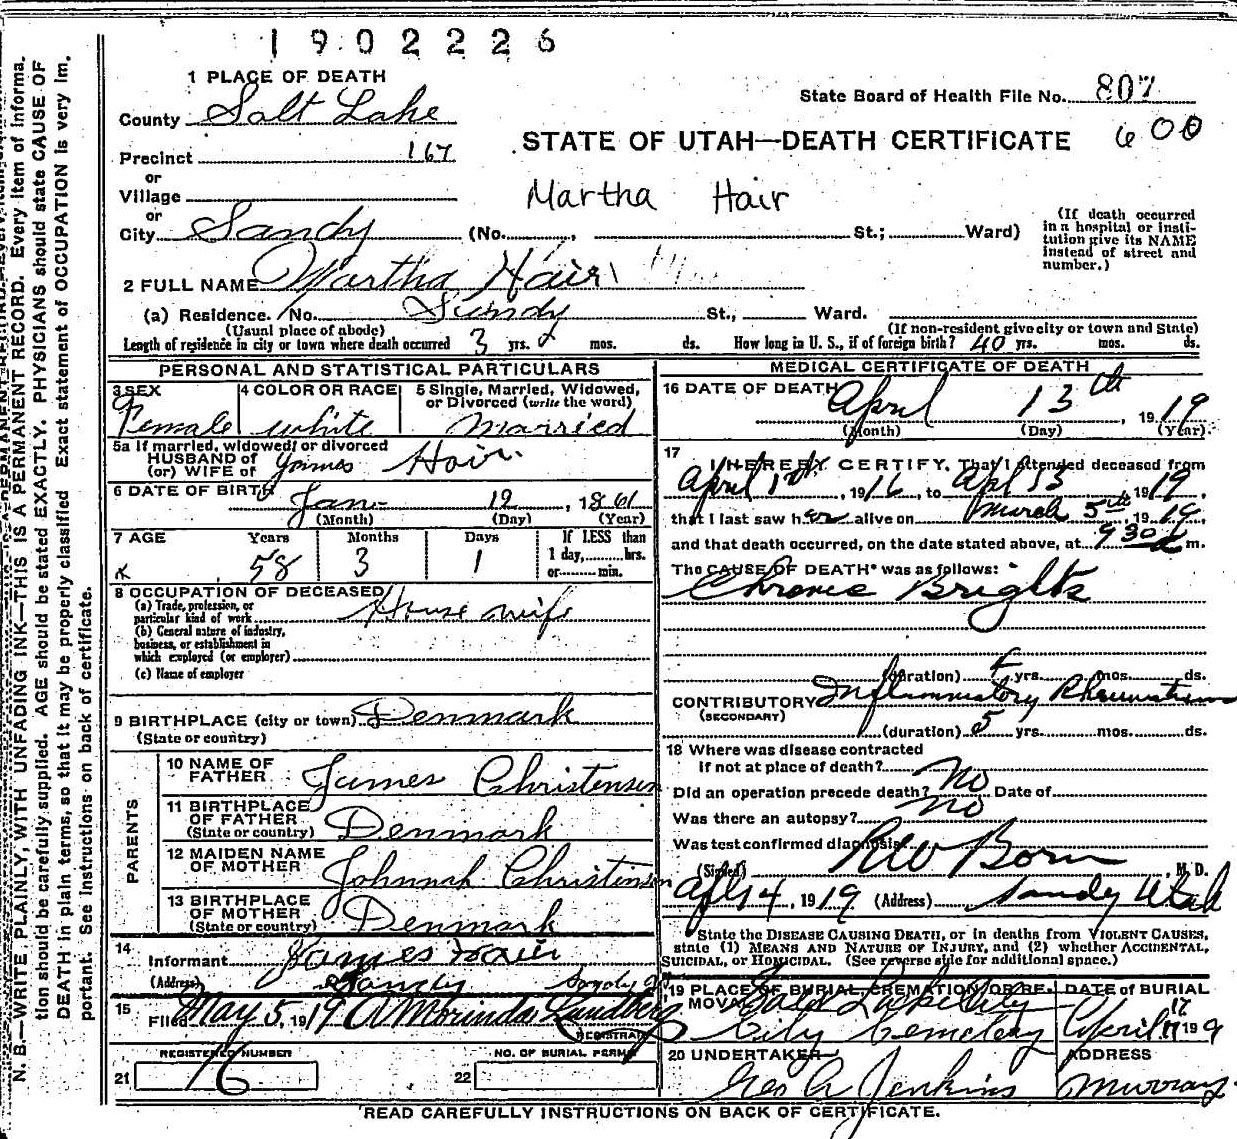 1902226
1 PLACE OF DEATH
State Board of Health File No. 807
County Salt Lake
STATE OF UTAH—DEATH CERTIFICATE 600
Precinct 167
or
Village
Martha Hair
or
City Sandy (No. , St.; Ward)
(If death occurred in a hospital or institution give its NAME instead of street and number.)
2 FULL NAME Martha Hair
(a) Residence. No. Sandy St., Ward.
(Usual place of abode) (If non-resident give city or town and State)
Length of residence in city or town where death occurred 3 yrs. 2 mos. ds. How long in U. S., if of foreign birth? 40 yrs. mos. ds.
PERSONAL AND STATISTICAL PARTICULARS
3 SEX 4 COLOR OR RACE 5 Single, Married, Widowed, or Divorced (write the word)
Female white Married
5a If married, widowed, or divorced
HUSBAND of
(or) WIFE of James Hair
6 DATE OF BIRTH Jan 12, 1861
(Month) (Day) (Year)
7 AGE Years Months Days If LESS than
58 3 1 1 day, hrs.
or min.
8 OCCUPATION OF DECEASED
(a) Trade, profession, or
particular kind of work House wife
(b) General nature of industry,
business, or establishment in
which employed (or employer)
(c) Name of employer
9 BIRTHPLACE (city or town) Denmark
(State or country)
PARENTS
10 NAME OF
FATHER James Christensen
11 BIRTHPLACE
OF FATHER
(State or country) Denmark
12 MAIDEN NAME
OF MOTHER Johnnah Christensen
13 BIRTHPLACE
OF MOTHER
(State or country) Denmark
14
Informant James Hair
(Address) Sandy
15
Filed May 5, 1919 A Morinda Lundberg
REGISTRAR
REGISTERED NUMBER NO. OF BURIAL PERMIT
21 16 22
MEDICAL CERTIFICATE OF DEATH
16 DATE OF DEATH April 13th, 1919
(Month) (Day) (Year)
17
I HEREBY CERTIFY, That I attended deceased from
April 1st, 1916, to Apl 13 1919,
that I last saw her alive on March 5th 1919,
and that death occurred, on the date stated above, at 9 30 a m.
The CAUSE OF DEATH* was as follows:
Chronic Brights
(duration) yrs. mos. ds.
CONTRIBUTORY Inflammatory Rheumatism
(SECONDARY)
(duration) 5 yrs. mos. ds.
18 Where was disease contracted
If not at place of death?
Did an operation precede death? No Date of
Was there an autopsy? No
Was test confirmed diagnosis?
(Signed) Born, M. D.
Apl 14, 1919 (Address) Sandy Utah
*State the DISEASE CAUSING DEATH, or in deaths from VIOLENT CAUSES,
state (1) MEANS AND NATURE OF INJURY, and (2) whether ACCIDENTAL,
SUICIDAL, or HOMICIDAL. (See reverse side for additional space.)
19 PLACE OF BURIAL, CREMATION OR RE- DATE OF BURIAL
MOVAL Salt Lake City
City Cemetery April 17 1919
20 UNDERTAKER ADDRESS
Geo A Jenkins Murray
READ CAREFULLY INSTRUCTIONS ON BACK OF CERTIFICATE.
N. B.—WRITE PLAINLY, WITH UNFADING INK—THIS IS A PERMANENT RECORD. Every item of informa-
tion should be carefully supplied. AGE should be stated EXACTLY. PHYSICIANS should state CAUSE OF
DEATH in plain terms, so that it may be properly classified Exact statement of OCCUPATION is very im-
portant. See instructions on back of certificate.